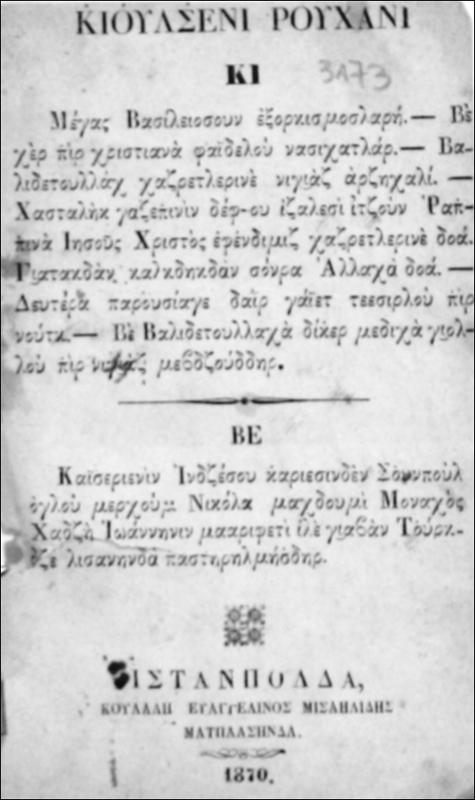 ΚΙΟΥΛΣΕΝΙ ΡΟΥΧΑΝΙ
ΚΙ
3173
Μέγας Βασίλειοσουν ἐξορκισμοσλαρή.— Βὲ
χὲρ πὶρ χριστιανὰ φαϊδελοὺ νασιχατλάρ.— Βα-
λιδετουλλὰχ χαζρετλερινὲ νιγιὰζ ἀρζηχαλί. —
Χασταλὴκ γαζεπινὶν δέφ-ου ἰζαλεσὶ ἰτζοὺν Ῥαπ-
πινὰ Ἰησοῦς Χριστὸς ἐφένδιμιζ χαζρετλερινὲ δοά.
Γιατακδὰν καλκδηκδὰν σόνρα Ἀλλαχὰ δοά. —
Δευτέρα παρουσίαγε δαῒρ γάϊετ τεεσιρλοὺ πὶρ
νούτκ.— Βὲ Βαλιδετουλλαχὰ δίκερ μεδιχὰ γιολ-
λοὺ πὶρ νιγιὰζ μεβδζούδδηρ.
ΒΕ
Καϊσεριενὶν Ἰνδζέσου καριεσινδὲν Σουνπούλ
ὀγλοὺ μερχοὺμ Νικόλα μαχδουμὶ Μοναχὸς
Χαδζὴ Ἰωάννηνιν μααριφετὶ ἰλὲ γιαβὰν Τοὺρκ-
δζὲ λισανηνδὰ παστηρηλμήσδηρ.
ΙΣΤΑΝΠΟΛΔΑ,
ΚΟΥΛΑΛΗ ΕΥΑΓΓΕΛΙΝΟΣ ΜΙΣΑΗΛΙΔΗΣ
ΜΑΤΠΑΑΣΗΝΔΑ.
1870.